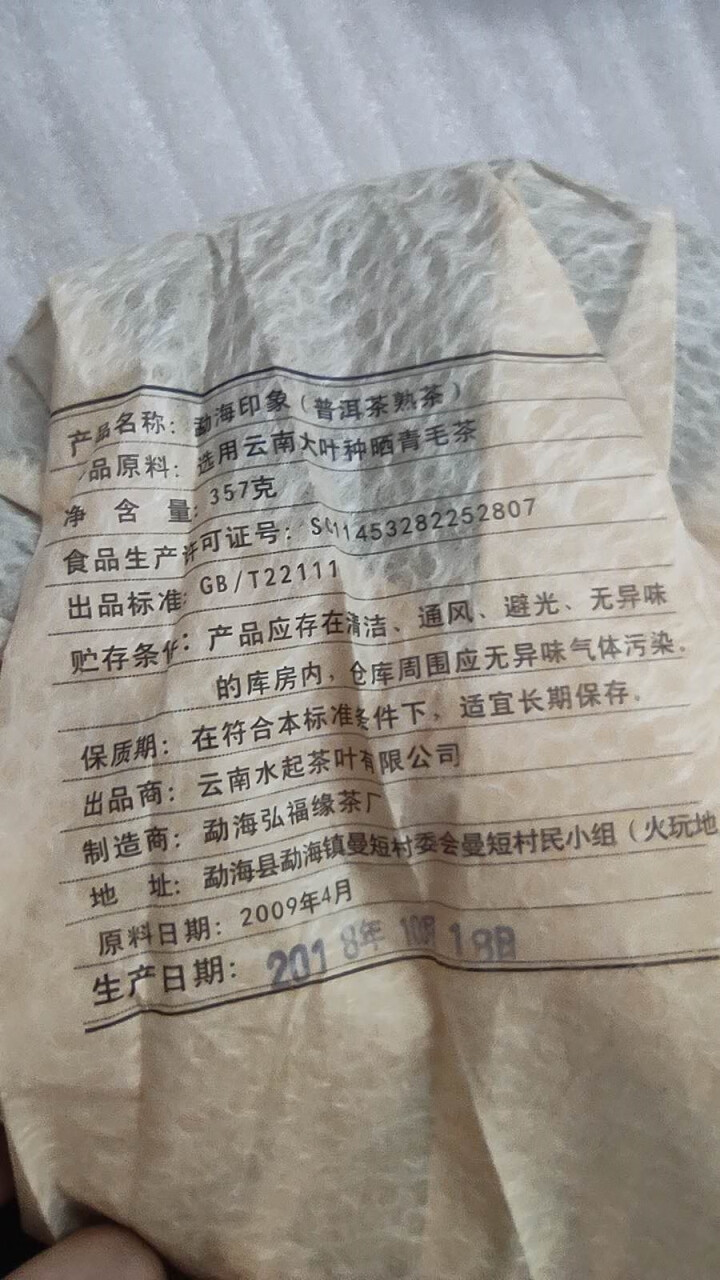 产品名称：勐海印象（普洱茶熟茶）
品原料：选用云南大叶种晒青毛茶
净 含 量：357克
食品生产许可证号：SC11453282252807
出品标准：GB/T22111
贮存条件：产品应存在清洁、通风、避光、无异味
的库房内，仓库周围应无异味气体污染。
保质期：在符合本标准条件下，适宜长期保存。
出品商：云南水起茶叶有限公司
制造商：勐海弘福缘茶厂
地 址：勐海县勐海镇曼短村委会曼短村民小组（火玩地
原料日期：2009年4月
生产日期：2018年10月18日